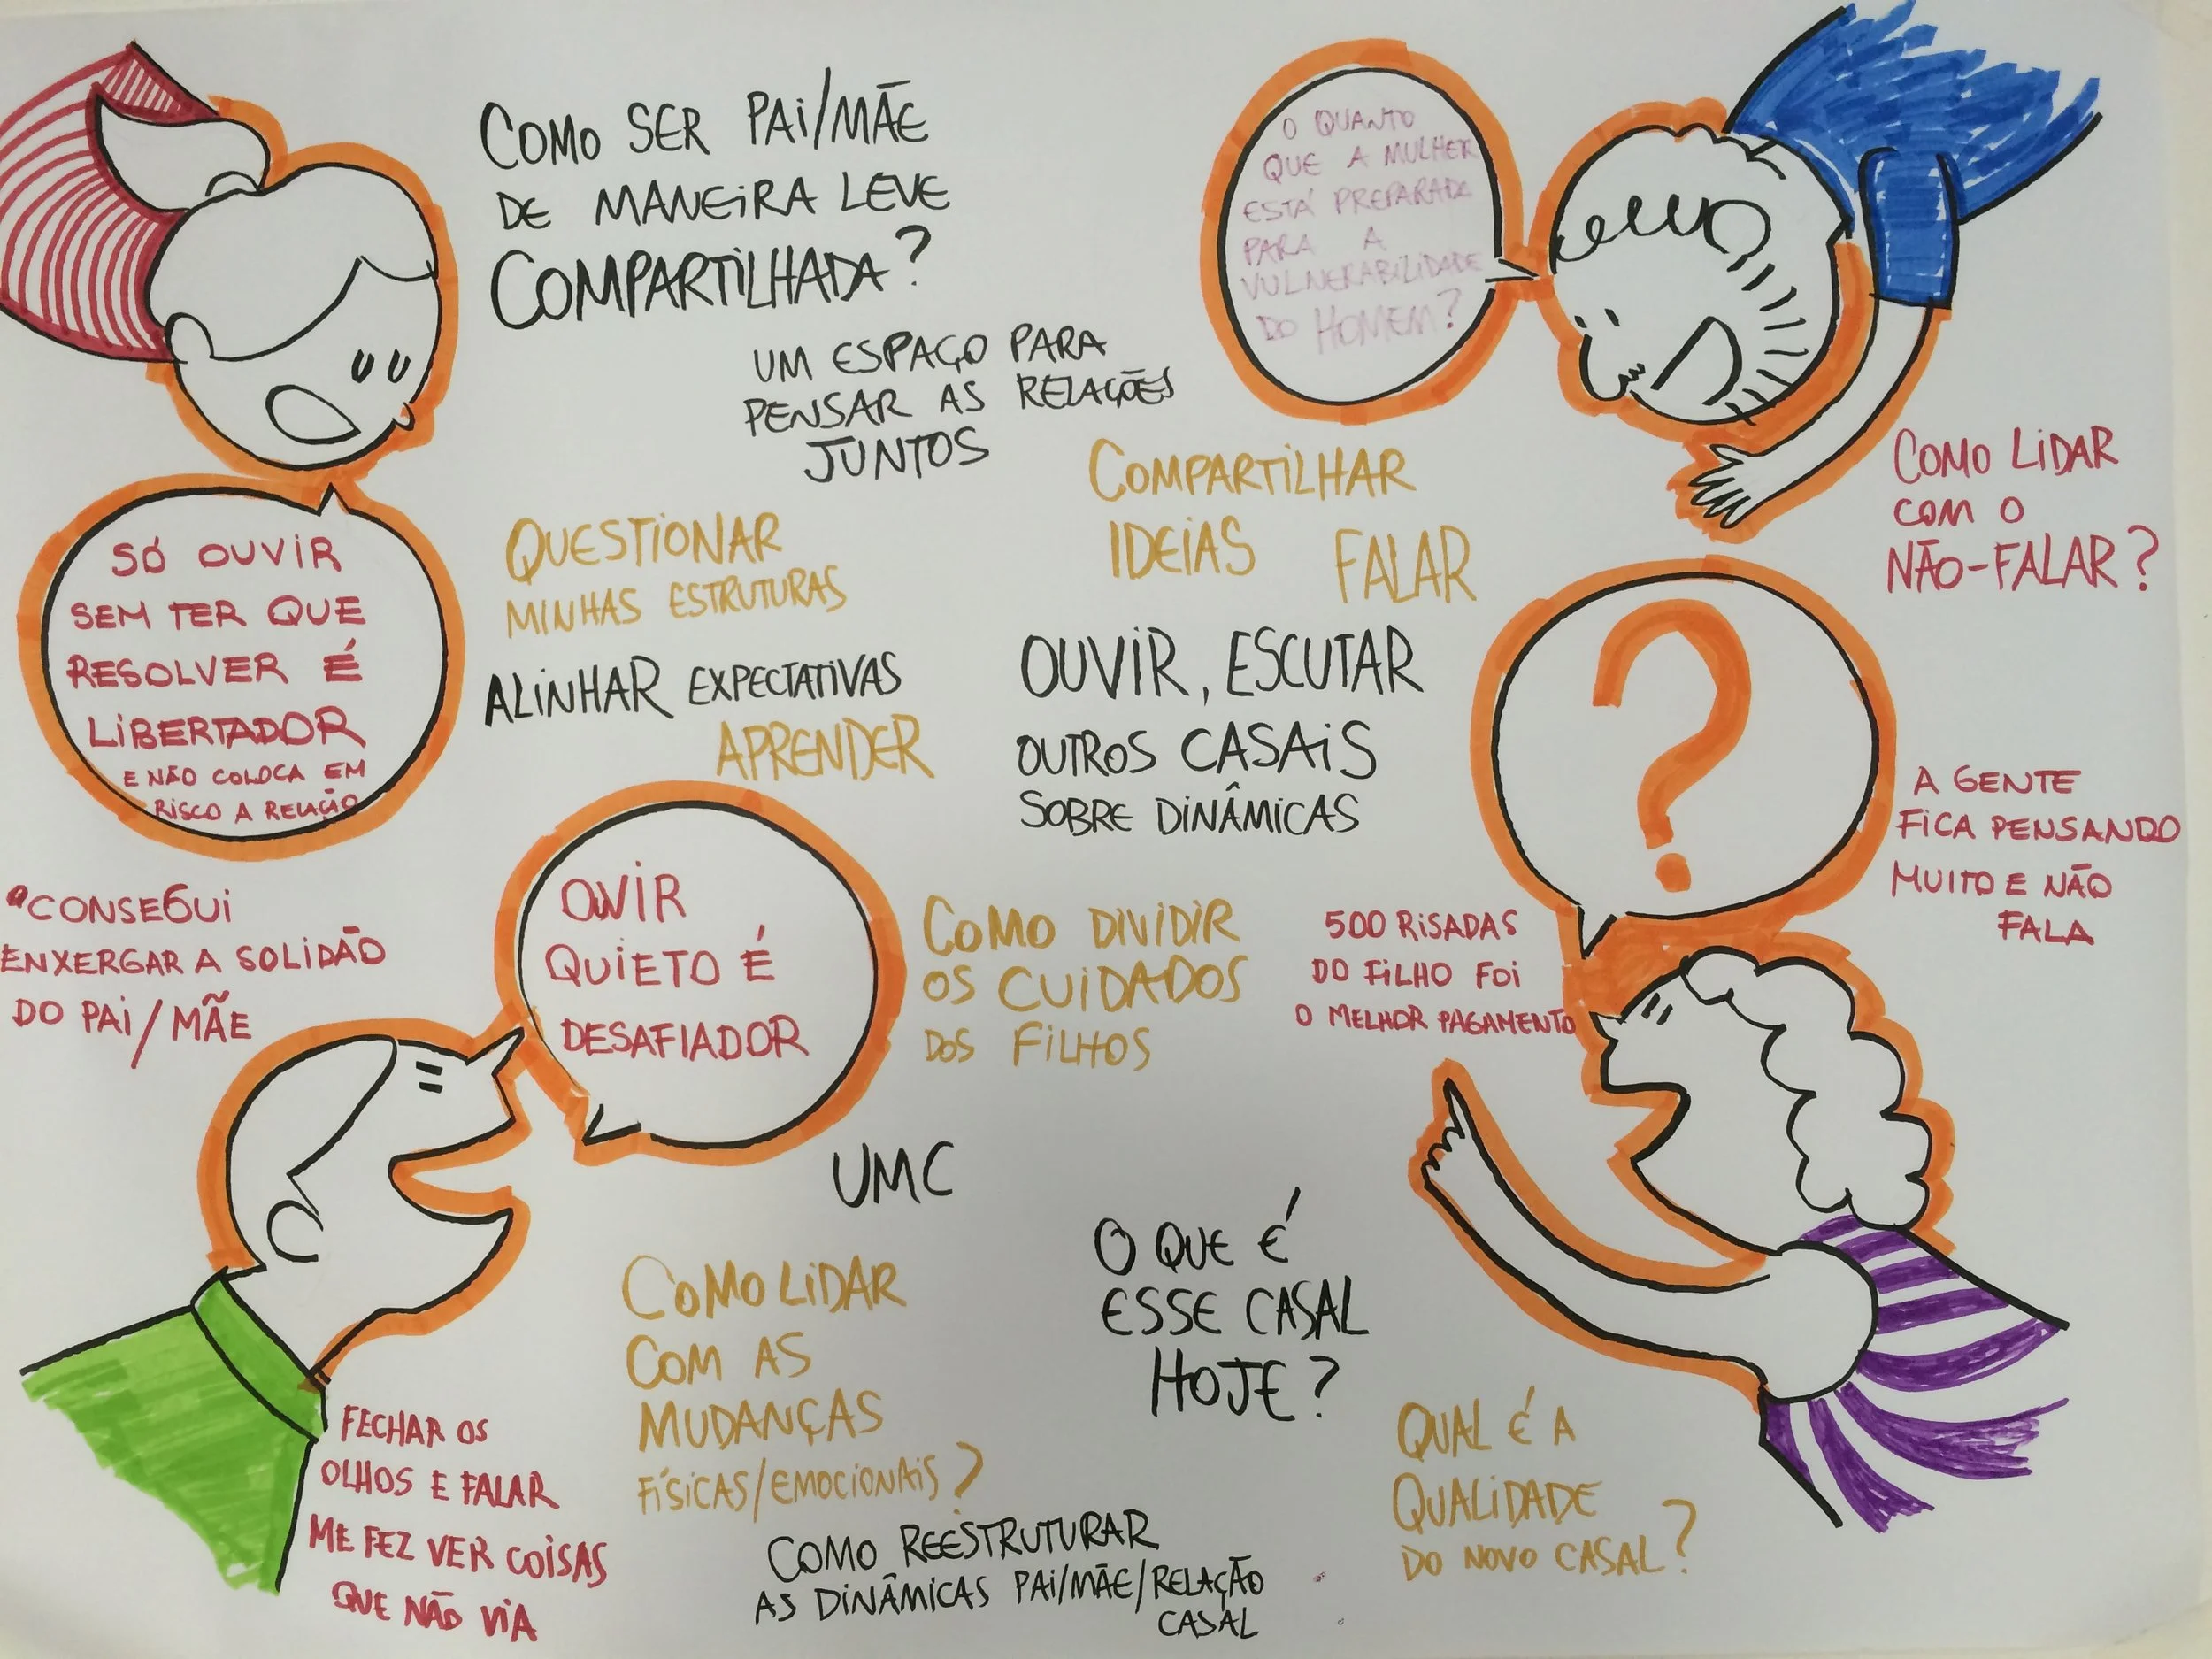 COMO SER PAI/MÃE
DE MANEIRA LEVE
COMPARTILHADA?
UM ESPAÇO PARA
PENSAR AS RELAÇÕES
JUNTOS
O QUANTO
QUE A MULHER
ESTÁ PREPARADA
PARA A
VULNERABILIDADE
DO HOMEM?
COMO LIDAR
COM O
NÃO-FALAR?
COMPARTILHAR
IDEIAS FALAR
QUESTIONAR
MINHAS ESTRUTURAS
ALINHAR EXPECTATIVAS
APRENDER
SÓ OUVIR
SEM TER QUE
RESOLVER É
LIBERTADOR
E NÃO COLOCA EM
RISCO A RELAÇÃO
OUVIR, ESCUTAR
OUTROS CASAIS
SOBRE DINÂMICAS
?
A GENTE
FICA PENSANDO
MUITO E NÃO
FALA
CONSEGUI
ENXERGAR A SOLIDÃO
DO PAI/MÃE
OUVIR
QUIETO É
DESAFIADOR
COMO DIVIDIR
OS CUIDADOS
DOS FILHOS
500 RISADAS
DO FILHO FOI
O MELHOR PAGAMENTO
UMC
O QUE É
ESSE CASAL
HOJE?
COMO LIDAR
COM AS
MUDANÇAS
FÍSICAS/EMOCIONAIS?
QUAL É A
QUALIDADE
DO NOVO CASAL?
FECHAR OS
OLHOS E FALAR
ME FEZ VER COISAS
QUE NÃO VIA
COMO REESTRUTURAR
AS DINÂMICAS PAI/MÃE/RELAÇÃO
CASAL